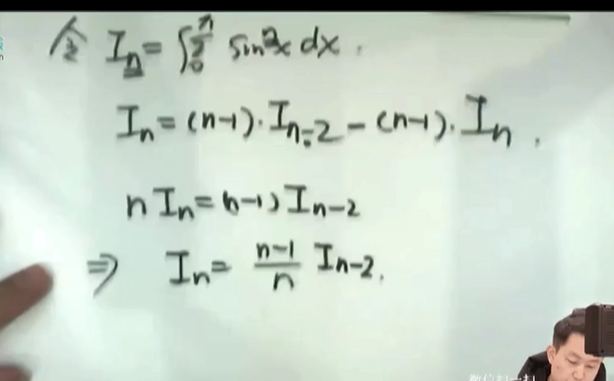 令 Iₙ = ∫₀^(π/2) sinⁿx dx.
Iₙ = (n-1)·Iₙ₋₂ - (n-1)·Iₙ.
n Iₙ = (n-1) Iₙ₋₂
⇒ Iₙ = (n-1)/n Iₙ₋₂.